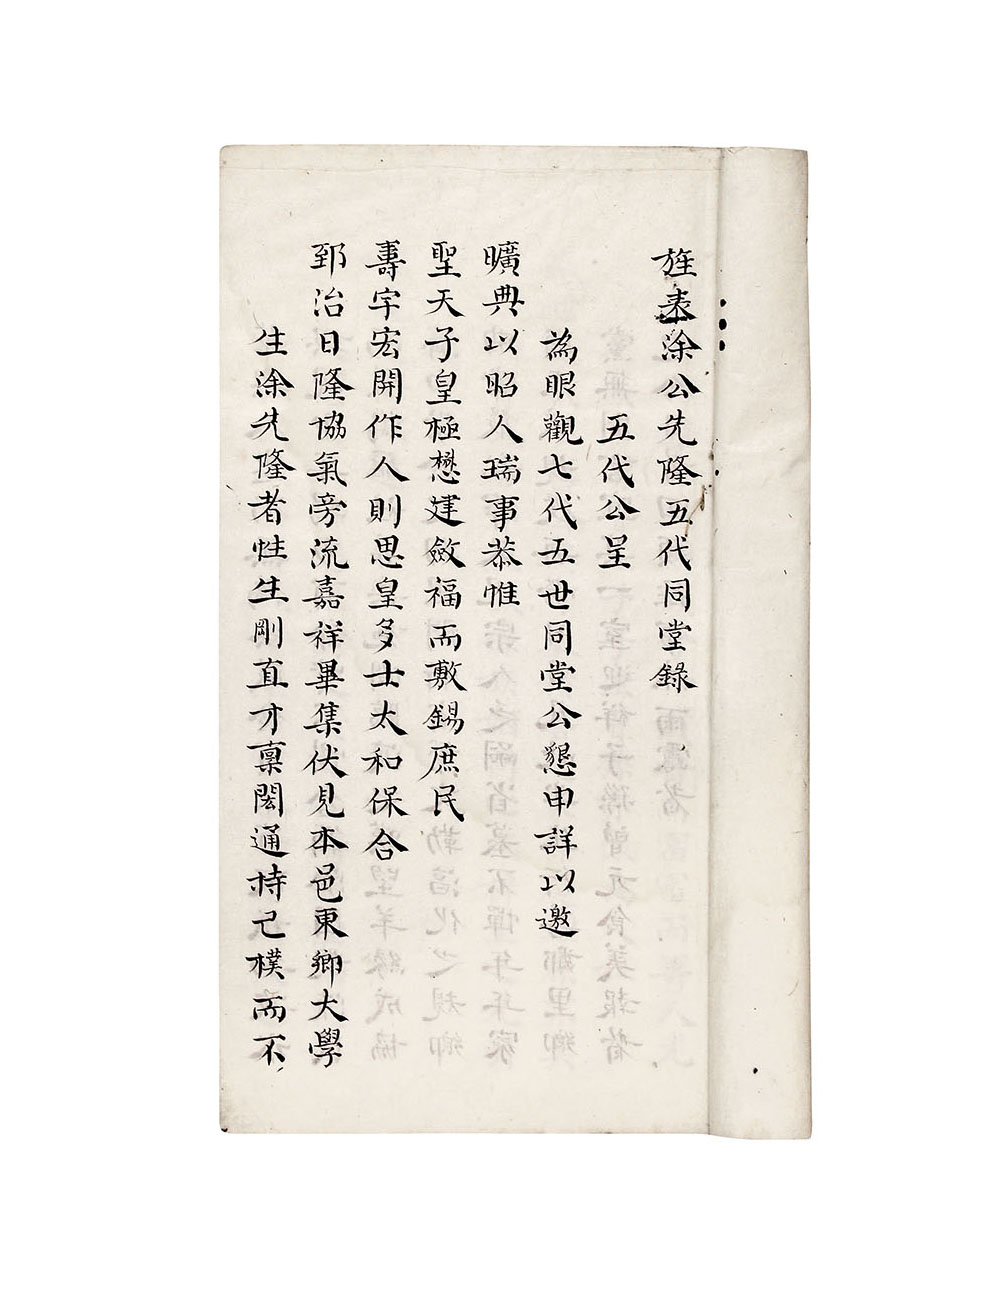 旌表涂公先隆五代同堂錄
五代公呈
為眼觀七代五世同堂公懇申詳以邀
曠典以昭人瑞事恭惟
聖天子皇極懋建斂福而敷錫庶民
壽宇宏開作人則思皇多士太和保合
郅治日隆協氣旁流嘉祥畢集伏見本邑東鄉大學
生涂先隆者性生剛直才稟閎通持己樸而不